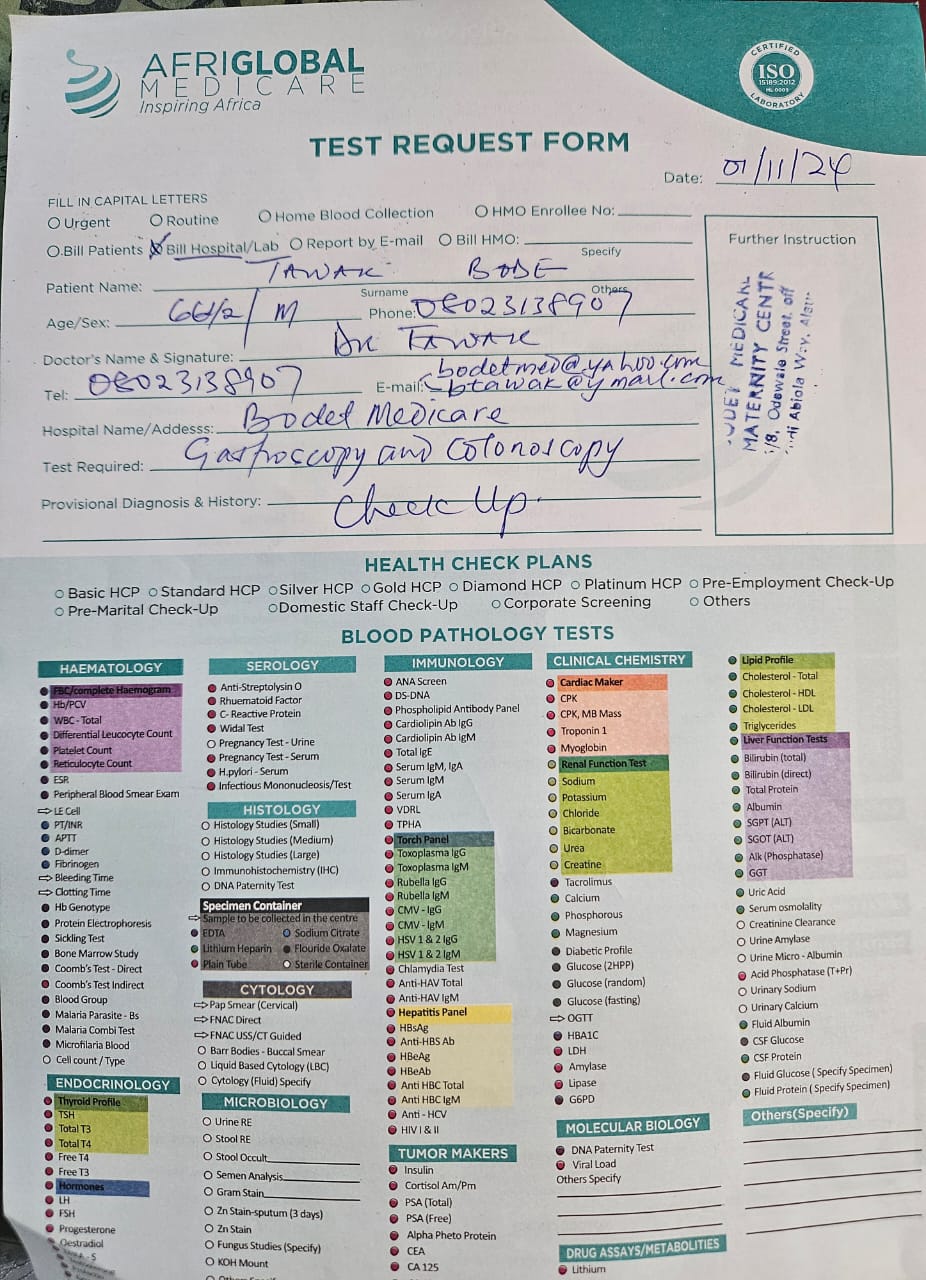 AFRIGLOBAL
MEDICARE
Inspiring Africa
CERTIFIED
ISO
15189:2012
LABORATORY
TEST REQUEST FORM
Date: 01/11/24
FILL IN CAPITAL LETTERS
Urgent Routine Home Blood Collection HMO Enrollee No:
Bill Patients Bill Hospital/Lab Report by E-mail Bill HMO:
Specify
Patient Name: TAWAK BODE
Surname Others
Age/Sex: 66 1/2 / M Phone: 08023138907
Doctor's Name & Signature: Dr TAWAK
Tel: 08023138907 E-mail: bodetmed@yahoo.com
btawak@ymail.com
Hospital Name/Addesss: Bodet Medicare
Test Required: Gastroscopy and Colonoscopy
Provisional Diagnosis & History: Check Up
Further Instruction
MEDICAL
MATERNITY CENTR
/8, Odewale Street, off
Abiola Way,
HEALTH CHECK PLANS
Basic HCP Standard HCP Silver HCP Gold HCP Diamond HCP Platinum HCP Pre-Employment Check-Up
Pre-Marital Check-Up Domestic Staff Check-Up Corporate Screening Others
BLOOD PATHOLOGY TESTS
HAEMATOLOGY
FBC/complete Haemogram
Hb/PCV
WBC - Total
Differential Leucocyte Count
Platelet Count
Reticulocyte Count
ESR
Peripheral Blood Smear Exam
LE Cell
PT/INR
APTT
D-dimer
Fibrinogen
Bleeding Time
Clotting Time
Hb Genotype
Protein Electrophoresis
Sickling Test
Bone Marrow Study
Coomb's Test - Direct
Coomb's Test Indirect
Blood Group
Malaria Parasite - Bs
Malaria Combi Test
Microfilaria Blood
Cell count / Type
ENDOCRINOLOGY
Thyroid Profile
TSH
Total T3
Total T4
Free T4
Free T3
Hormones
LH
FSH
Progesterone
Oestradiol
SEROLOGY
Anti-Streptolysin O
Rhuematoid Factor
C- Reactive Protein
Widal Test
Pregnancy Test - Urine
Pregnancy Test - Serum
H.pylori - Serum
Infectious Mononucleosis/Test
HISTOLOGY
Histology Studies (Small)
Histology Studies (Medium)
Histology Studies (Large)
Immunohistochemistry (IHC)
DNA Paternity Test
Specimen Container
Sample to be collected in the centre
EDTA Sodium Citrate
Lithium Heparin Flouride Oxalate
Plain Tube Sterile Container
CYTOLOGY
Pap Smear (Cervical)
FNAC Direct
FNAC USS/CT Guided
Barr Bodies - Buccal Smear
Liquid Based Cytology (LBC)
Cytology (Fluid) Specify
MICROBIOLOGY
Urine RE
Stool RE
Stool Occult
Semen Analysis
Gram Stain
Zn Stain-sputum (3 days)
Zn Stain
Fungus Studies (Specify)
KOH Mount
IMMUNOLOGY
ANA Screen
DS-DNA
Phospholipid Antibody Panel
Cardiolipin Ab IgG
Cardiolipin Ab IgM
Total IgE
Serum IgM, IgA
Serum IgM
Serum IgA
VDRL
TPHA
Torch Panel
Toxoplasma IgG
Toxoplasma IgM
Rubella IgG
Rubella IgM
CMV - IgG
CMV - IgM
HSV 1 & 2 IgG
HSV 1 & 2 IgM
Chlamydia Test
Anti-HAV Total
Anti-HAV IgM
Hepatitis Panel
HBsAg
Anti-HBS Ab
HBeAg
HBeAb
Anti HBC Total
Anti HBC IgM
Anti - HCV
HIV I & II
TUMOR MAKERS
Insulin
Cortisol Am/Pm
PSA (Total)
PSA (Free)
Alpha Pheto Protein
CEA
CA 125
CLINICAL CHEMISTRY
Cardiac Maker
CPK
CPK, MB Mass
Troponin 1
Myoglobin
Renal Function Test
Sodium
Potassium
Chloride
Bicarbonate
Urea
Creatine
Tacrolimus
Calcium
Phosphorous
Magnesium
Diabetic Profile
Glucose (2HPP)
Glucose (random)
Glucose (fasting)
OGTT
HBA1C
LDH
Amylase
Lipase
G6PD
MOLECULAR BIOLOGY
DNA Paternity Test
Viral Load
Others Specify
DRUG ASSAYS/METABOLITIES
Lithium
Lipid Profile
Cholesterol - Total
Cholesterol - HDL
Cholesterol - LDL
Triglycerides
Liver Function Tests
Bilirubin (total)
Bilirubin (direct)
Total Protein
Albumin
SGPT (ALT)
SGOT (ALT)
Alk (Phosphatase)
GGT
Uric Acid
Serum osmolality
Creatinine Clearance
Urine Amylase
Urine Micro - Albumin
Acid Phosphatase (T+Pr)
Urinary Sodium
Urinary Calcium
Fluid Albumin
CSF Glucose
CSF Protein
Fluid Glucose ( Specify Specimen)
Fluid Protein ( Specify Specimen)
Others(Specify)